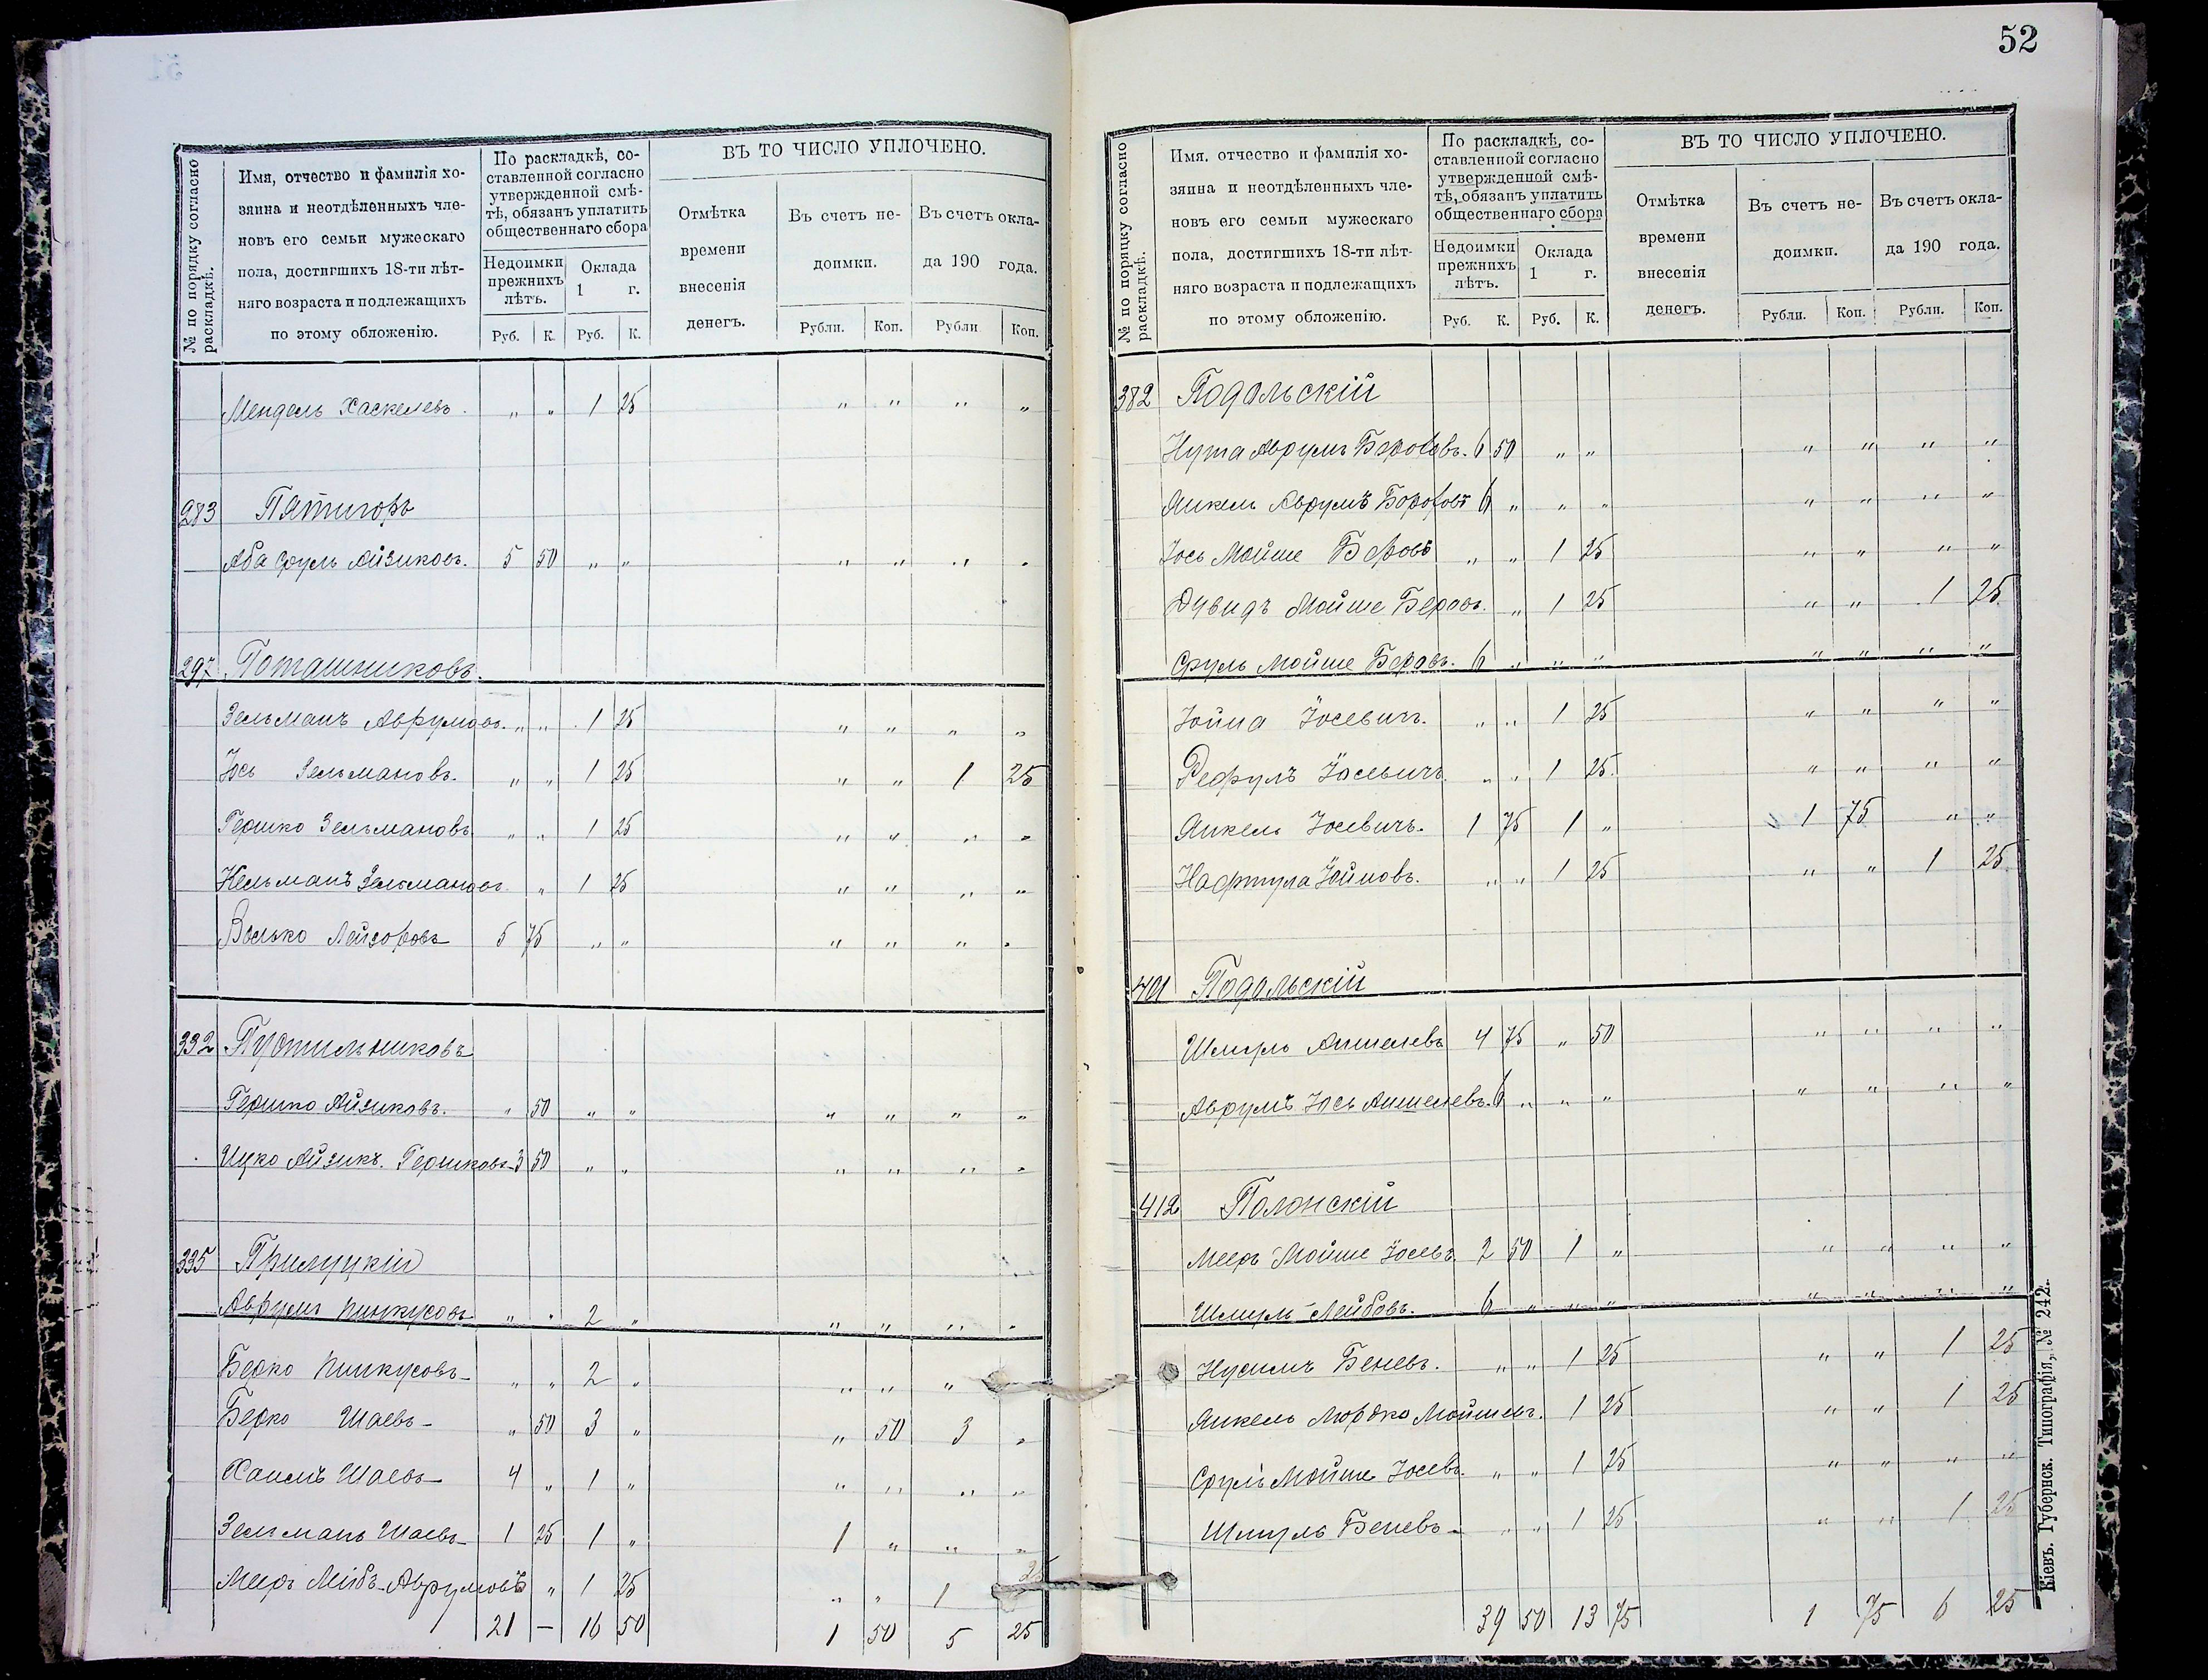 № по порядку согласно раскладкѣ.
Имя, отчество и фамилія хо-
зяина и неотдѣленныхъ чле-
новъ его семьи мужескаго
пола, достигшихъ 18-ти лѣт-
няго возраста и подлежащихъ
по этому обложенію.
По раскладкѣ, со-
ставленной согласно
утвержденной смѣ-
тѣ, обязанъ уплатить
общественнаго сбора
Недоимки прежнихъ лѣтъ.
Оклада 1 г.
Руб. К. Руб. К.
ВЪ ТО ЧИСЛО УПЛОЧЕНО.
Отмѣтка
времени
внесенія
денегъ.
Въ счетъ не-
доимки.
Въ счетъ окла-
да 190 года.
Рубли. Коп. Рубли Коп.
Мендель Хаскелевъ. " " 1 25 " " " "
283 Пятигоръ
Аба Сруль Айзиковъ. 5 50 " " " " " "
297 Поташниковъ.
Зельманъ Аврумовъ. " " 1 25 " " " "
Іось Зельмановъ. " " 1 25 " " 1 25
Гершко Зельмановъ " " 1 25 " " " "
Кельманъ Зельмановъ " 1 25 " " " "
Волько Лейзоровъ 5 75 " " " " " "
332 Пустильниковъ
Гершко Айзиковъ. " 50 " " " " " "
Ицко Айзикъ. Гершковъ 3 50 " " " " " "
335 Прилуцкій
Аврумъ Пинкусовъ " " 2 " " " " "
Берко Пинкусовъ " " 2 " " " "
Берко Шаевъ " 50 3 " " 50 3 "
Хаимъ Шаевъ 4 " 1 " " " " "
Зельманъ Шаевъ 1 25 1 " 1 " " "
Мееръ Лейбъ Аврумовъ " 1 25 " " 1 25
21 — 16 50 1 50 5 25
52
№ по порядку согласно раскладкѣ.
Имя, отчество и фамилія хо-
зяина и неотдѣленныхъ чле-
новъ его семьи мужескаго
пола, достигшихъ 18-ти лѣт-
няго возраста и подлежащихъ
по этому обложенію.
По раскладкѣ, со-
ставленной согласно
утвержденной смѣ-
тѣ, обязанъ уплатить
общественнаго сбора
Недоимки прежнихъ лѣтъ.
Оклада 1 г.
Руб. К. Руб. К.
ВЪ ТО ЧИСЛО УПЛОЧЕНО.
Отмѣтка
времени
внесенія
денегъ.
Въ счетъ не-
доимки.
Въ счетъ окла-
да 190 года.
Рубли. Коп. Рубли. Коп.
382 Подольскій
Нута Аврумъ Беровъ. 6 50 " " " " " "
Янкель Аврумъ Беровъ 6 " " " " " " "
Іось Мойше Беровъ " " 1 25 " " " "
Дувидъ Мойше Беровъ. " 1 25 " " 1 25
Сруль Мойше Беровъ. 6 " " " " " " "
Іойна Іосевичъ. " " 1 25 " " " "
Рефулъ Іосевичъ. " " 1 25 " " " "
Янкель Іосевичъ. 1 75 1 " 1 75 " "
Нафтула Іойновъ. " " 1 25 " " 1 25
401 Подольскій
Шмуль Аншелевъ 4 75 " 50 " " " "
Аврумъ Іось Аншелевъ. 6 " " " " " " "
412 Полонскій
Мееръ Мойше Іосевъ. 2 50 1 " " " " "
Шмуль Лейбовъ. 6 " " " " " " "
Нусимъ Беневъ. " " 1 25 " " 1 25
Янкель Мордко Мойшевъ. 1 25 " " 1 25
Сруль Мойше Іосевъ. " " 1 25 " " " "
Шмуль Беневъ " " 1 25 " " 1 25
39 50 13 75 1 75 6 25
Кіевъ. Губернск. Типографія, № 242.